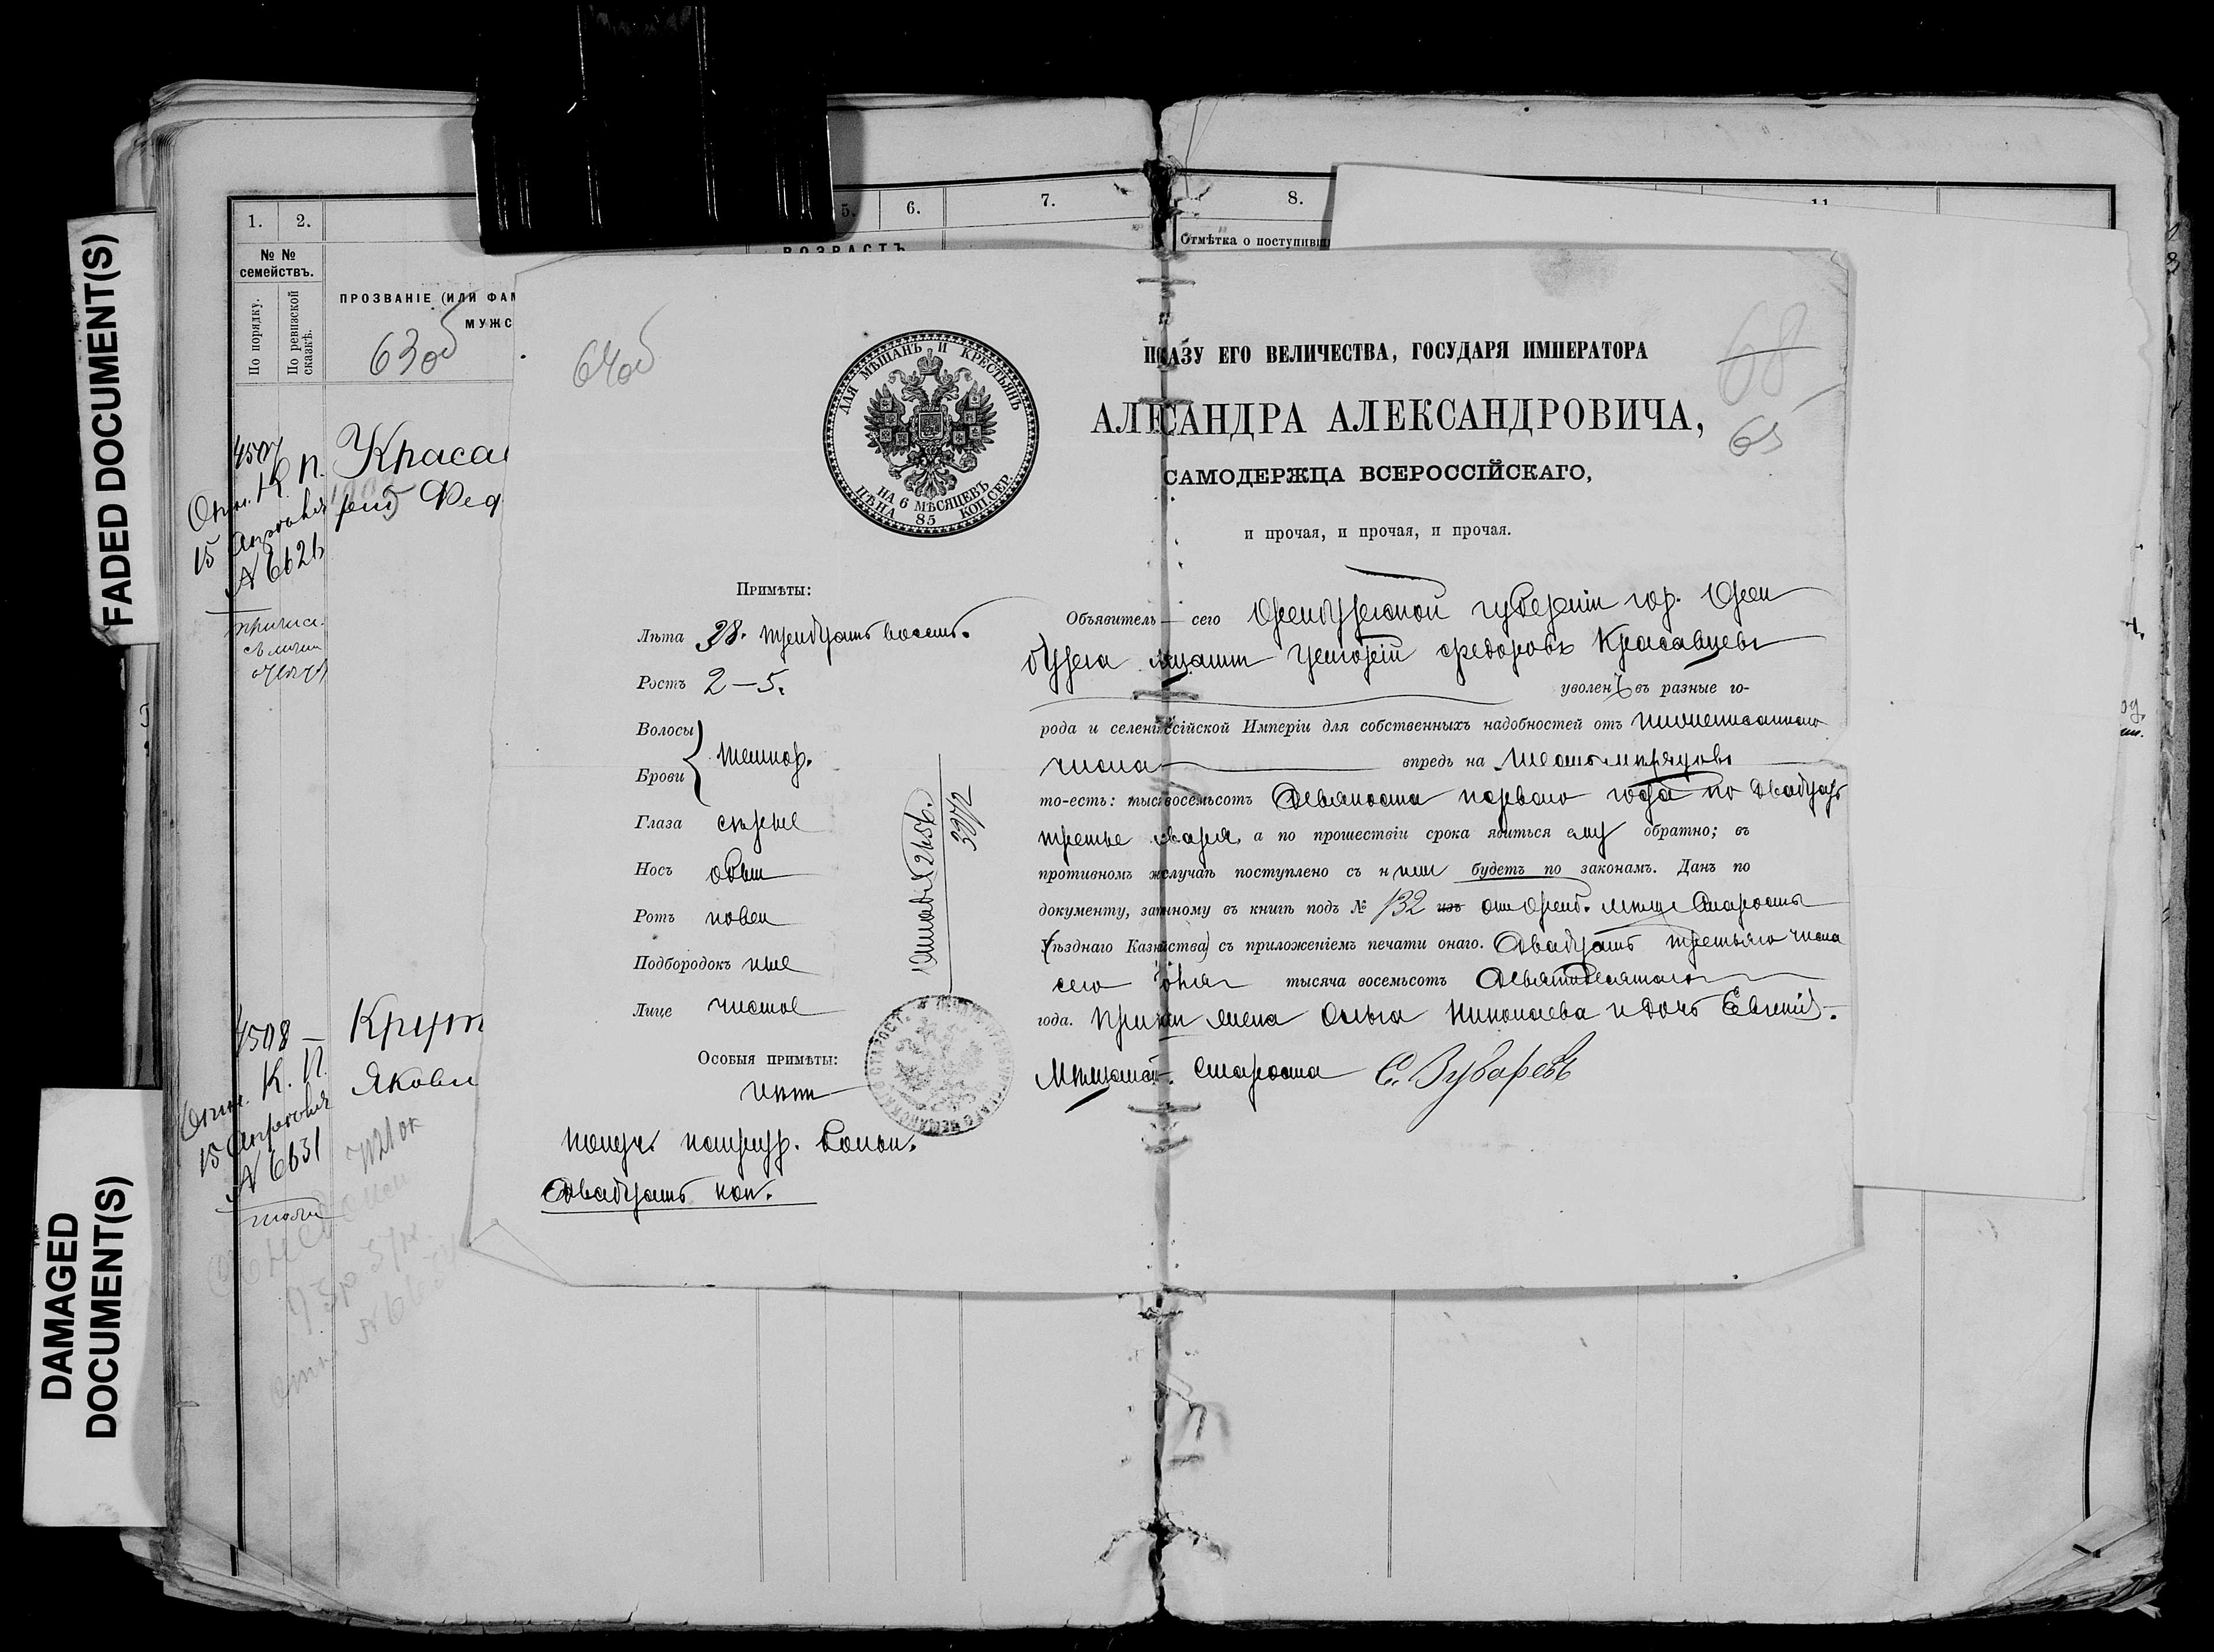 FADED DOCUMENT(S)
DAMAGED
DOCUMENT(S)
1. 2. 5. 6. 7. 8. 11
№ №
семействъ.
По порядку.
По ревизской
сказкѣ.
ПРОЗВАНІЕ (ИЛИ ФАМ
МУЖС
ВОЗРАСТЪ
Отмѣтка о поступивш
63об
4507
К. П.
15
№ 6626
Краса
Фед
4508 —
К. П.
15
№ 6631
Крут
Яковл
64об
68
65
ДЛЯ МѢЩАНЪ И КРЕСТЬЯНЪ
НА 6 МѢСЯЦЕВЪ
ЦѢНА 85 КОП.СЕР.
ПО УКАЗУ ЕГО ВЕЛИЧЕСТВА, ГОСУДАРЯ ИМПЕРАТОРА
АЛЕКСАНДРА АЛЕКСАНДРОВИЧА,
САМОДЕРЖЦА ВСЕРОССІЙСКАГО,
и прочая, и прочая, и прочая.
Примѣты:
Лѣта 38. тридцать восемь.
Ростъ 2—5.
Волосы
Брови темнор.
Глаза сѣрые
Носъ обык
Ротъ
Подбородокъ
Лице чистое
Особыя примѣты:
нѣтъ
Двадцать коп.
Объявитель сего Оренбургской губерніи гор. Орен
бурга мѣщанин Григорій Федоровъ Красавцевъ
уволенъ въ разные го-
рода и селенія Россійской Имперіи для собственныхъ надобностей отъ нижеписаннаго
числа впредь на шесть мѣсяцовъ
то-есть: тысяча восемьсотъ Девяноста перваго года по Двадцать
третье января, а по прошествіи срока явиться ему обратно; въ
противномъ же случаѣ поступлено съ нимъ будетъ по законамъ. Данъ по
документу, записанному въ книгѣ подъ № 132 изъ от Оренб. мѣщ. Старосты
(Уѣзднаго Казначейства) съ приложеніемъ печати онаго. Двадцать третьяго числа
сего Іюля тысяча восемьсотъ Девятидесятаго
года. При нем жена Ольга Николаева и дочь Евгенія.
Мѣщанск. Староста С. Зубаревъ